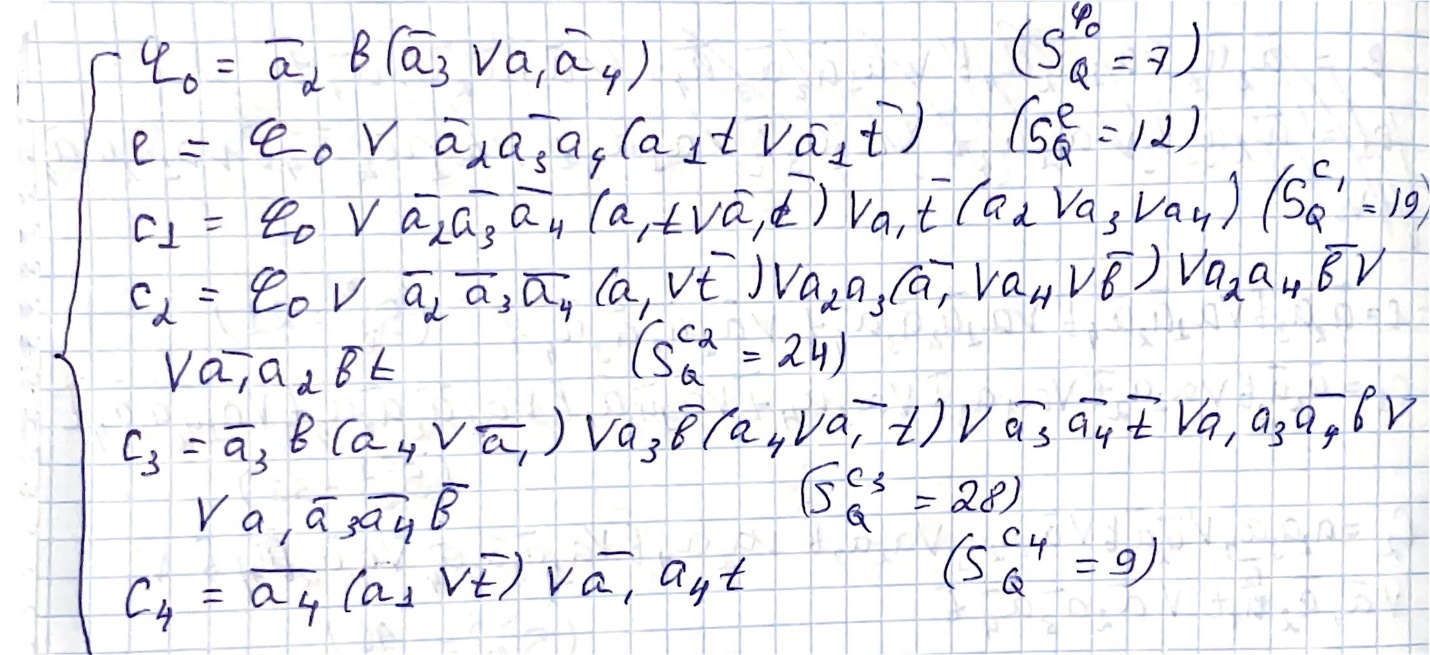 φ₀ = ā₂ b (ā₃ ∨ a₁ ā₄) (S_Q^φ₀ = 7)
e = φ₀ ∨ ā₂ ā₃ a₄ (a₁ t ∨ ā₁ t̄) (S_Q^e = 12)
c₁ = φ₀ ∨ ā₂ ā₃ ā₄ (a₁ t ∨ ā₁ t̄) ∨ a₁ t̄ (a₂ ∨ a₃ ∨ a₄) (S_Q^c₁ = 19)
c₂ = φ₀ ∨ ā₂ ā₃ ā₄ (a₁ ∨ t̄) ∨ a₂ a₃ (ā₁ ∨ a₄ ∨ b̄) ∨ a₂ a₄ b̄ ∨
∨ ā₁ a₂ b̄ t (S_Q^c₂ = 24)
c₃ = ā₃ b (a₄ ∨ ā₁) ∨ a₃ b̄ (a₄ ∨ ā₁ t) ∨ ā₃ ā₄ t̄ ∨ a₁ a₃ ā₄ b ∨
∨ a₁ ā₃ ā₄ b̄ (S_Q^c₃ = 28)
c₄ = ā₄ (a₁ ∨ t̄) ∨ ā₁ a₄ t (S_Q^c₄ = 9)